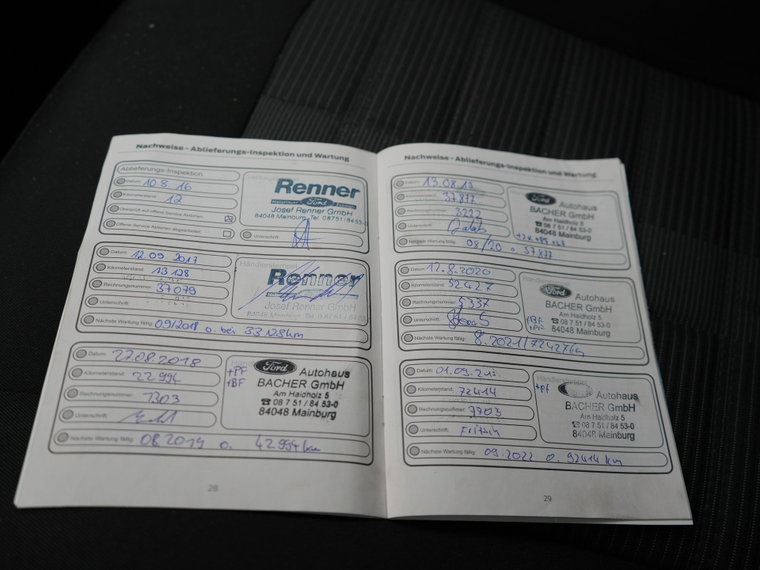 Nachweise - Ablieferungs-Inspektion und Wartung
Ablieferungs-Inspektion
Datum: 10.8.16
Kilometerstand: 12
Überprüft auf offene Service-Aktionen
Offene Service-Aktionen abgearbeitet
Renner
Ford
Josef Renner GmbH
84048 Mainburg Tel. 08751/8453-0
Unterschrift:
Datum: 12.09.2017
Kilometerstand: 13128
Rechnungsnummer: 37079
Unterschrift:
Nächste Wartung fällig: 09/2018 o. bei 33128km
Renner
Josef Renner GmbH
Datum: 27.08.2018
Kilometerstand: 22994
Rechnungsnummer: 1303
Unterschrift:
Nächste Wartung fällig: 08.2019 o. 42.994 km
+PF
+BF
Ford Autohaus
BACHER GmbH
Am Haidholz 5
☎ 08 7 51 / 84 53-0
84048 Mainburg
28
Nachweise - Ablieferungs-Inspektion und Wartung
Datum: 13.08.19
Kilometerstand: 37877
Rechnungsnummer:
Unterschrift:
Nächste Wartung fällig: 08/20 o.
Ford Autohaus
BACHER GmbH
Am Haidholz 5
☎ 08 7 51 / 84 53-0
84048 Mainburg
Datum: 12.8.2020
Kilometerstand: 52427
Rechnungsnummer: 5337
Unterschrift:
Nächste Wartung fällig: 8.2021/72427km
+BF
+PF
Ford Autohaus
BACHER GmbH
Am Haidholz 5
☎ 08 7 51 / 84 53-0
84048 Mainburg
Datum: 01.09.21
Kilometerstand: 72414
Rechnungsnummer: 7703
Unterschrift: Fritsch
Nächste Wartung fällig: 09.2022 o. 92414 km
+PF
Autohaus
BACHER GmbH
Am Haidholz 5
☎ 08 7 51 / 84 53-0
84048 Mainburg
29